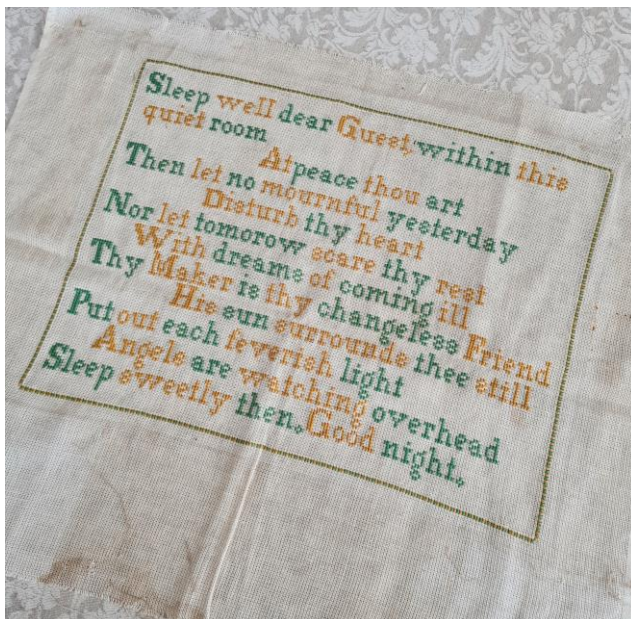 Sleep well dear Guest, within this
quiet room
At peace thou art
Then let no mournful yesterday
Disturb thy heart
Nor let tomorow scare thy rest
With dreams of coming ill
Thy Maker is thy changeless Friend
His sun surrounds thee still
Put out each feverish light
Angels are watching overhead
Sleep sweetly then. Good night.